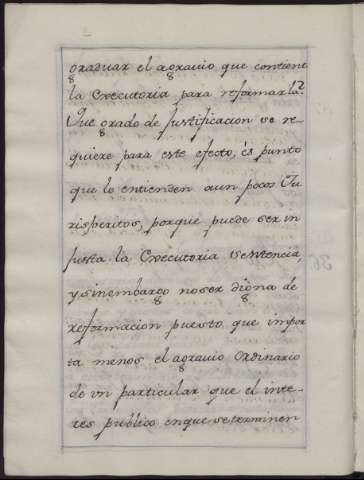 graduar el agrauio que contiene
la Executoria para reformarla?
Que grado de justificacion se re-
quiere para este efecto, és punto
que lo entienden aun pocos Ju
risperitos, porque puede ser in
justa la Executoria sentencia,
y sinembargo noser digna de
reformacion puesto que impor
ta menos el agrauio ordinario
de vn particular que el inte-
res publico enque seterminen